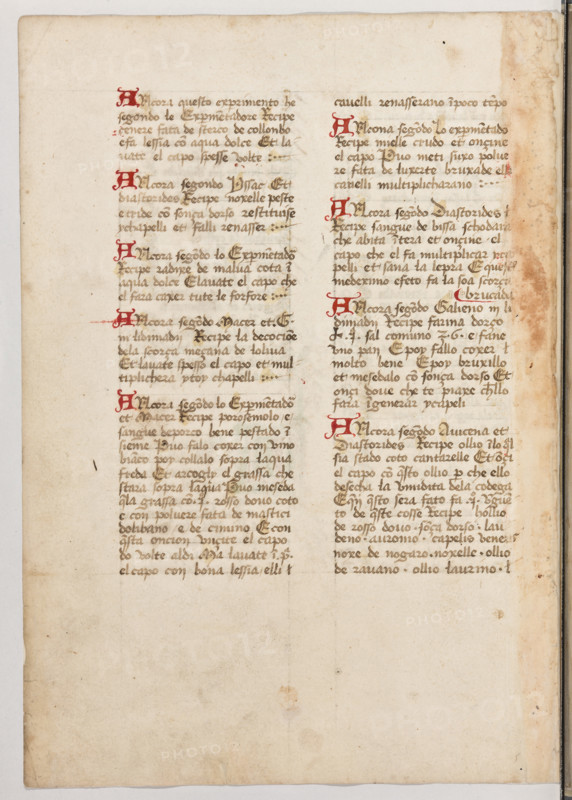 ARcora questo exprimento he
segondo lo Expmētadore Recipe
cenere fata de sterco de collondo
efa lessia cō aqua dolce Et la
uate el capo spesse uolte :
ARcora segondo Yssac Et
diastorides Recipe noxelle peste
etride cō sonça dorso restituise
ychapelli et falli renasser :
ARcora segōdo lo Expmētadō
Recipe radixe de malua cota ī
aqua dolce Elauate el capo che
el fara caxer tute le forfore :
ARcora segōdo Macer et
Recipe la decociōe
dela scorça meçana de loliua
Et lauate spesso el capo et mul
tiplichera ytoy chapelli :
ARcora segōdo lo Expmētadō
et Macer Recipe porosemolo e
sangue deporco bene pestado ī
sieme Puo falo coxer con uino
biāco poy collalo sopra laqua
freda Et arcogly el grassa che
stara sopra laqua Puo meseda
q̄la grassa cō .j. rosso douo coto
e con poluere fata de mastici
dolibano e de cimino E con
q̄sta oncion unçite el capo
do uolte aldi Ma lauate ī p̄
el capo con bona lessia elli
cauelli renasserano īpoco tēpo
ARcona segōdo lo expmētado
Recipe mielle crudo et onçine
el capo Puo meti suxo polue
re fata de luxerte bruxade el
cauelli multiplicharano :
ARcora segōdo Diastorides
Recipe sangue de bissa schodara
che abita ītera et onçine el
capo che el fa multiplicar
pelli et sana la lepra E quest
medeximo efeto fa la soa scorça
brucada
ARcora segōdo Galieno in li
Recipe farina dorço
sal comuno 6 e fane
uno pan Epoy fallo coxer
molto bene Epoy bruxillo
et mesedalo cō sonça dorso Et
onçi doue che te piaxe chillo
fara īgenerar ycapeli
ARcora segōdo Auicena et
Diastorides Recipe ollio īlo
sia stado coto cantarelle Et
el capo cō q̄sto ollio p che ello
desecha la umidita dela codega
q̄sto sera fato fa .j. ūgue
to de q̄ste cosse Recipe hollio
de rosso douo . sōça dorso . lau
deno . auronio . capelis uener
noxe de nogaro . noxelle . ollio
de rauano . ollio laurino .
PHOTO12
PHOTO12
PHOTO12
PHOTO12
PHOTO12